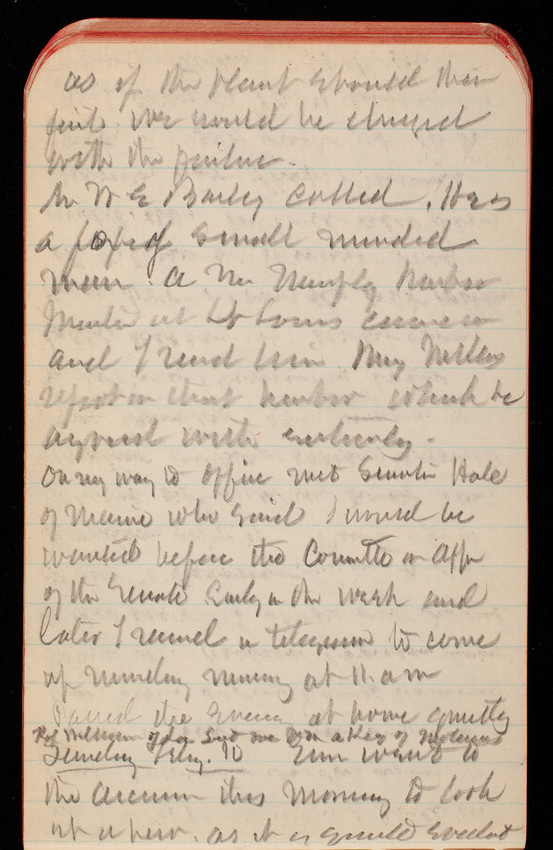 as if the plant should then
fail we would be charged
with the failure.
Mr W E Bailey called. He is
a small minded
man. A Mr Murphy Harbor
Master at St Louis came in
and I read him Maj Millers
report on that harbor which he
agreed with entirely.
On my way to office met Senator Hale
of Maine who said I would be
wanted before the Committee on App
of the Senate Early in the week and
later I received a telegram to come
up Monday morning at 11. a m
Passed the Evening at home quietly
of La Sent me a Keg of Molasses
Sunday Feby. 10 Em went to
the this morning to look
at a pew. as it is quite Evident